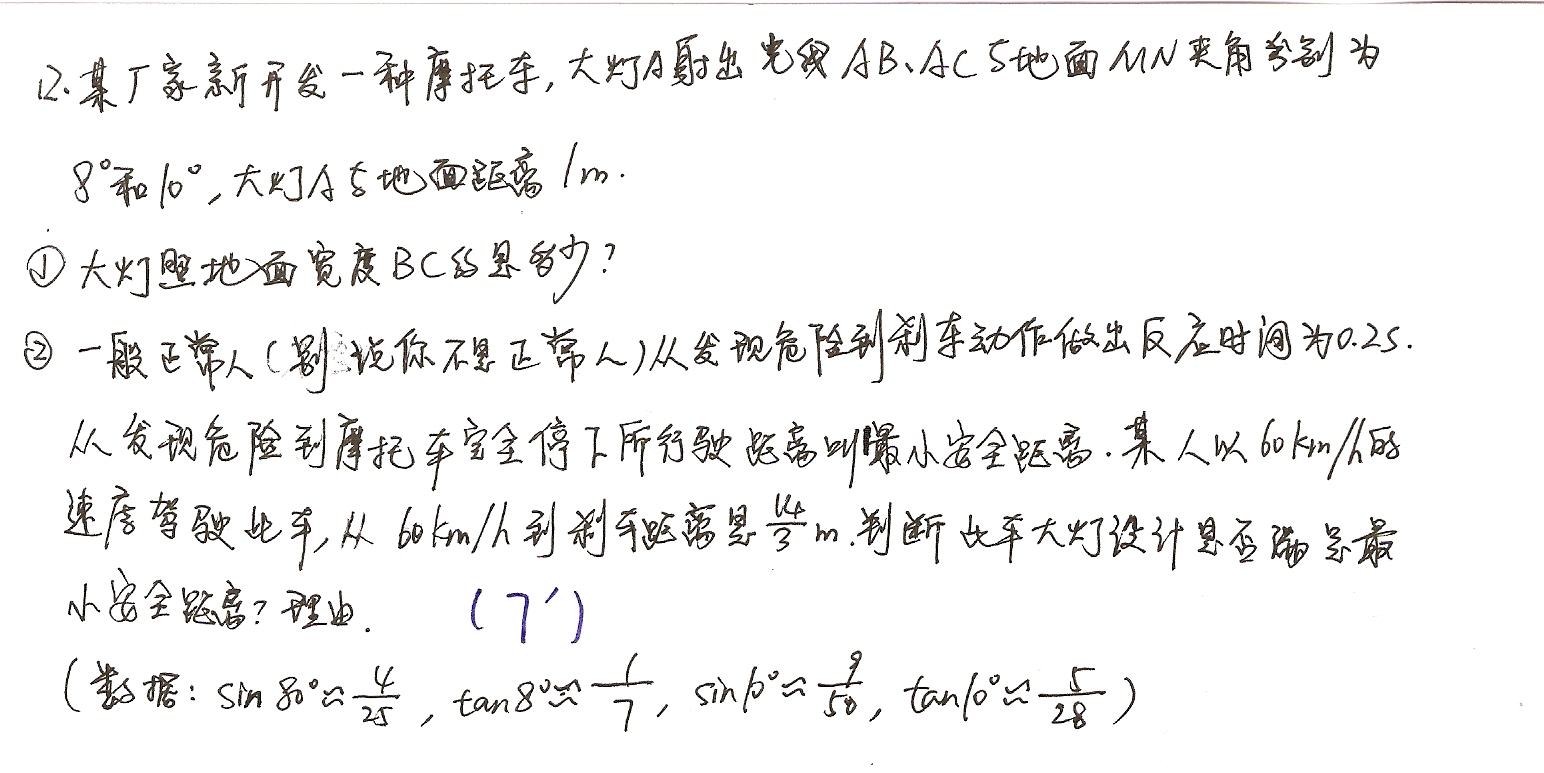 12.某厂家新开发一种摩托车,大灯A射出光线AB、AC与地面MN夹角分别为
8°和10°,大灯A与地面距离1m.
① 大灯照地面宽度BC约是多少?
② 一般正常人(别说你不是正常人)从发现危险到刹车动作做出反应时间为0.2s.
从发现危险到摩托车完全停下所行驶距离叫最小安全距离.某人以60km/h的
速度驾驶此车,从60km/h到刹车距离是14/3m.判断此车大灯设计是否满足最
小安全距离?理由. (7′)
(数据:sin80°≈4/25,tan8°≈1/7,sin10°≈9/50,tan10°≈5/28)